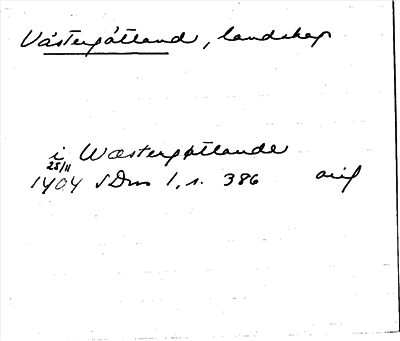 Västergötland, landskap
i Wæstergøtlande
25/11
1404 SDns 1, s. 386 orig